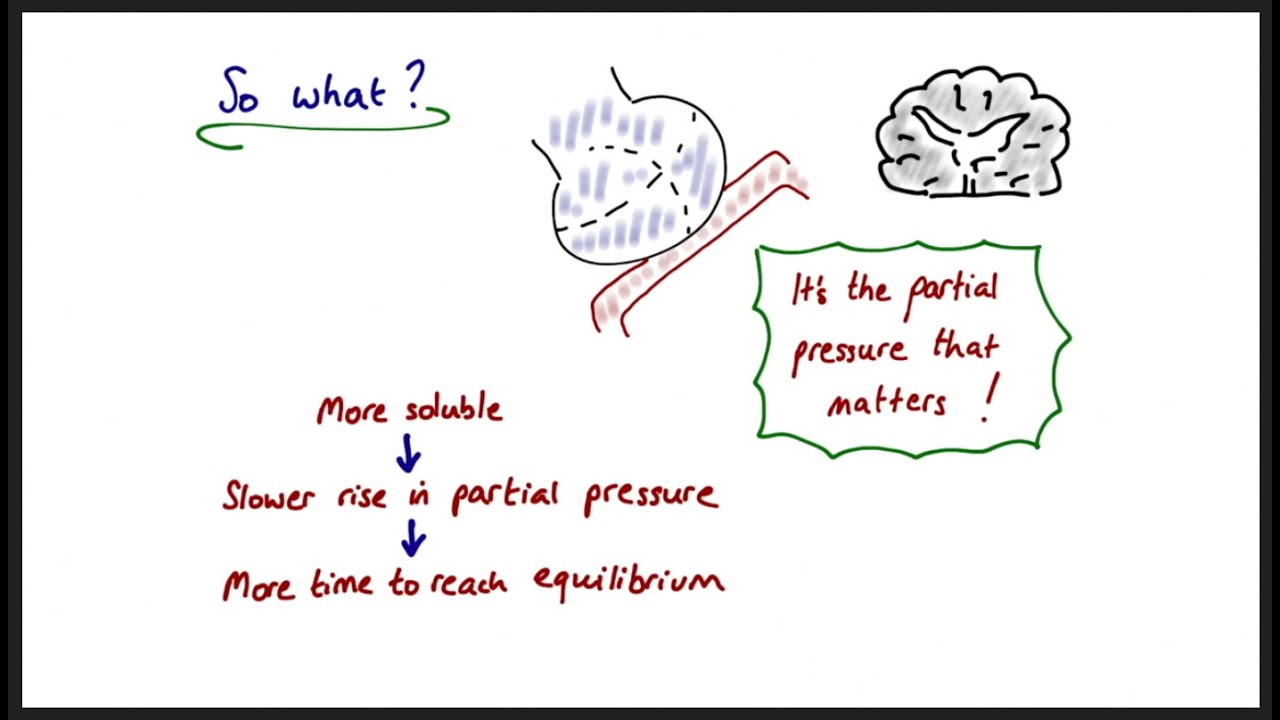 So what?
It's the partial
pressure that
matters!
More soluble
Slower rise in partial pressure
More time to reach equilibrium